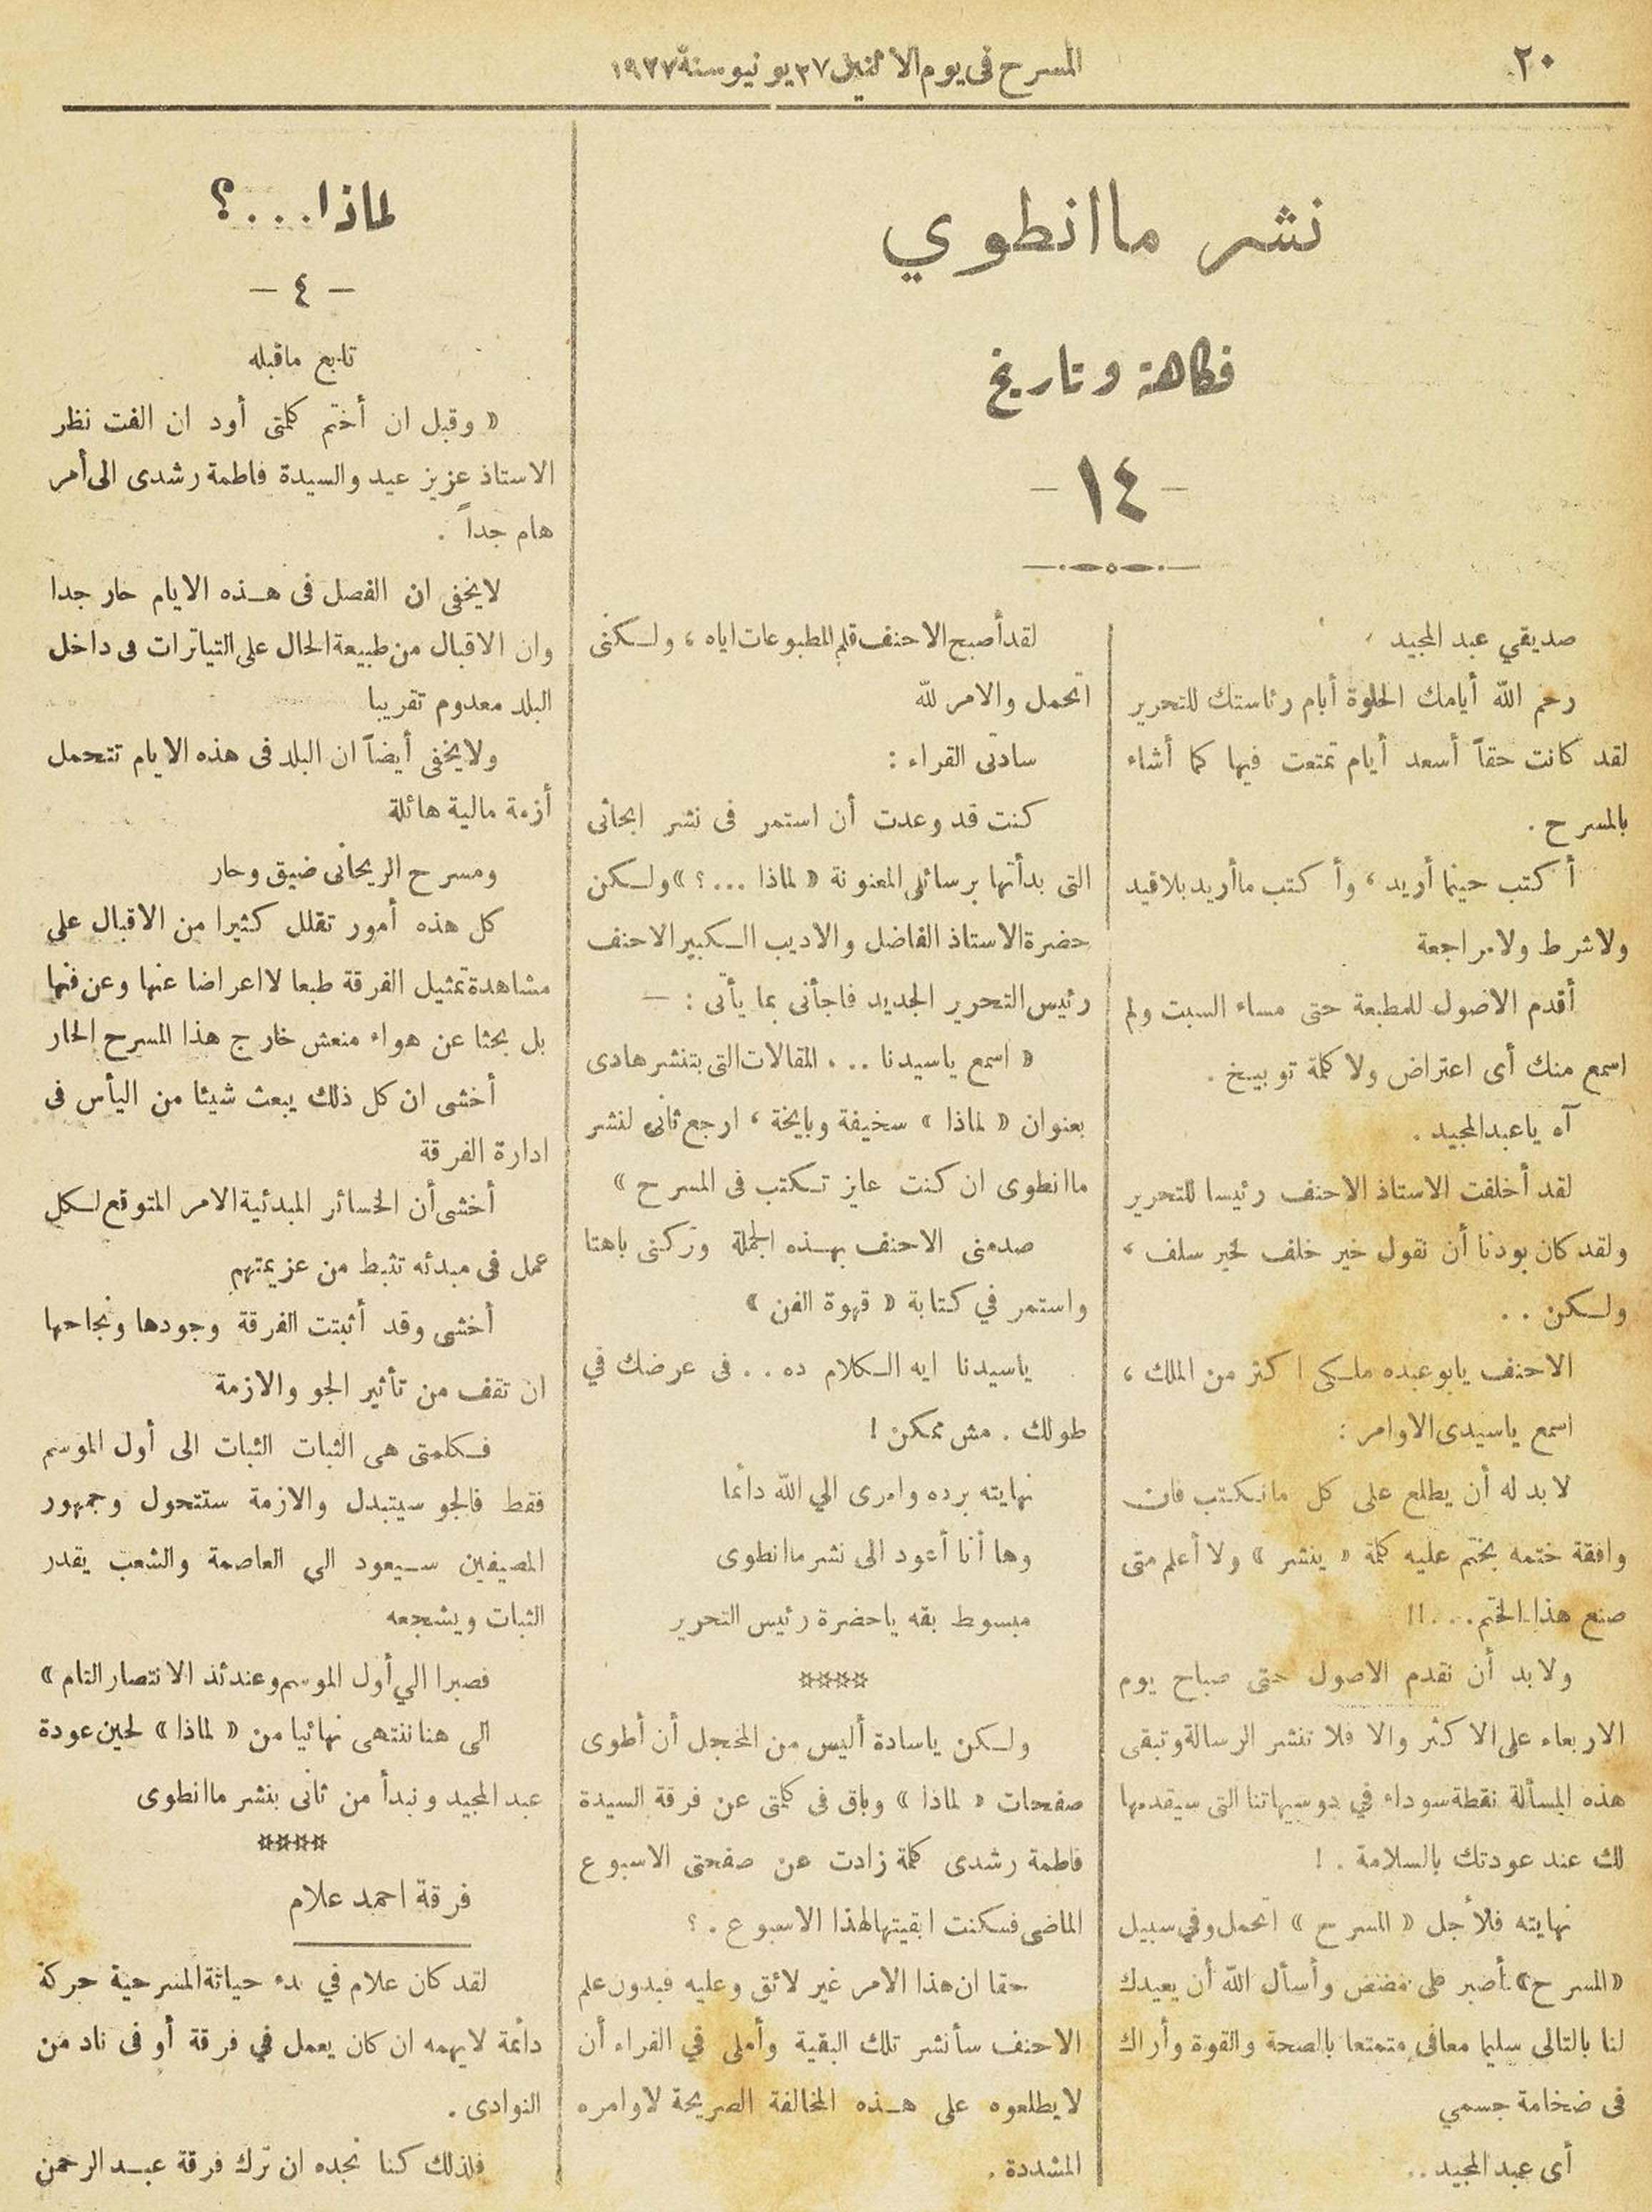 ٢٠
المسرح فى يوم الاثنين ٢٧ يونيو سنة ١٩٢٧
نشر ماانطوي
فكاهة وتاريخ
- ١٤ -
صديقي عبد المجيد
رحم الله أيامك الحلوة أيام رئاستك للتحرير
لقد كانت حقاً أسعد أيام تمتعت فيها كما أشاء
بالمسرح .
أكتب حينما أريد ، وأكتب ماأريد بلاقيد
ولاشرط ولامراجعة
أقدم الاصول للمطبعة حتى مساء السبت ولم
اسمع منك أى اعتراض ولا كلمة توبيخ .
آه ياعبد المجيد .
لقد أخلفت الاستاذ الاحنف رئيسا للتحرير
ولقد كان بودنا أن نقول خير خلف لخير سلف ،
ولكن . .
الاحنف يابو عبده ملكى اكثر من الملك ،
اسمع ياسيدى الاوامر :
لا بد له أن يطلع على كل مانكتب فان
وافقة ختمه بختم عليه كلمة « ينشر » ولا أعلم متى
صنع هذا الختم . . . !!
ولا بد أن نقدم الاصول حتى صباح يوم
الاربعاء على الاكثر والا فلا تنشر الرسالة وتبقى
هذه المسألة نقطة سوداء في دوسيهاتنا التى سيقدمها
لك عند عودتك بالسلامة . !
نهايته فلأجل « المسرح » اتحمل وفي سبيل
«المسرح» أصبر على مضض وأسأل الله أن يعيدك
لنا بالتالى سليما معافى متمتعا بالصحة والقوة وأراك
فى ضخامة جسمي
أى عبد المجيد ..
لقد أصبح الاحنف قلم المطبوعات اياه ، ولكنى
اتحمل والامر لله
سادتى القراء :
كنت قد وعدت أن استمر فى نشر ابحاثى
التى بدأتها برسائلى المعنونة « لماذا ... ؟ » ولكن
حضرة الاستاذ الفاضل والاديب الكبير الاحنف
رئيس التحرير الجديد فاجأنى بما يأتى : —
« اسمع ياسيدنا . . . المقالات التى بتنشر هادى
بعنوان « لماذا » سخيفة وبايخة ، ارجع ثانى لنشر
ماانطوى ان كنت عايز تكتب فى المسرح »
صدمنى الاحنف بهذه الجملة وتركنى باهتا
واستمر في كتابة « قهوة الفن »
ياسيدنا ايه الكلام ده . . فى عرضك في
طولك . مش ممكن !
نهايته برده وامرى الي الله دائما
وها أنا أعود الى نشر ماانطوى
مبسوط بقه ياحضرة رئيس التحرير
¤¤¤¤
ولكن ياسادة أليس من المخجل أن أطوى
صفحات « لماذا » وباق فى كلمتى عن فرقة السيدة
فاطمة رشدى كلمة زادت عن صفحتى الاسبوع
الماضى فكنت ابقيتها لهذا الاسبوع . ؟
حقا ان هذا الامر غير لائق وعليه فبدون علم
الاحنف سأنشر تلك البقية وأملى في القراء أن
لايطلعوه على هذه المخالفة الصريحة لاوامره
المشددة .
لماذا . . . ؟
- ٤ -
تابع ماقبله
« وقبل ان أختم كلمتى أود ان الفت نظر
الاستاذ عزيز عيد والسيدة فاطمة رشدى الى أمر
هام جداً .
لايخفى ان الفصل فى هذه الايام حار جدا
وان الاقبال من طبيعة الحال على التياترات فى داخل
البلد معدوم تقريبا
ولايخفى أيضاً ان البلد فى هذه الايام تتحمل
أزمة مالية هائلة
ومسرح الريحانى ضيق وحار
كل هذه أمور تقلل كثيرا من الاقبال على
مشاهدة تمثيل الفرقة طبعا لااعراضا عنها وعن فنها
بل بحثا عن هواء منعش خارج هذا المسرح الحار
أخشى ان كل ذلك يبعث شيئا من اليأس فى
ادارة الفرقة
أخشى أن الخسائر المبدئية الامر المتوقع لكل
عمل فى مبدئه تثبط من عزيمتهم
أخشى وقد أثبتت الفرقة وجودها ونجاحها
ان تقف من تأثير الجو والازمة
فكلمتى هى الثبات الثبات الى أول الموسم
فقط فالجو سيتبدل والازمة ستتحول وجمهور
المصيفين سيعود الى العاصمة والشعب يقدر
الثبات ويشجعه
فصبرا الي أول الموسم وعندئذ الانتصار التام »
الى هنا ننتهى نهائيا من « لماذا » لحين عودة
عبد المجيد ونبدأ من ثانى بنشر ماانطوى
¤¤¤¤
فرقة احمد علام
لقد كان علام في بدء حياتة المسرحية حركة
دائمة لايهمه ان كان يعمل في فرقة أو فى ناد من
النوادى .
فلذلك كنا نجده ان ترك فرقة عبد الرحمن